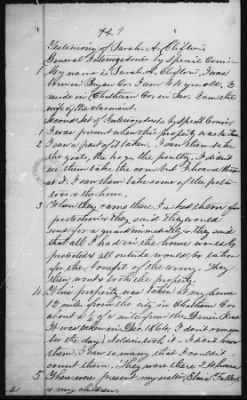 No 9
Testimony of Sarah A. Clifton
General Interrogatories by Special Com'r
1 My name is Sarah A. Clifton, I was
born in Bryan Co. I am 46 years old, I
reside in Chatham Co. in Geo. I am the
wife of the claimant.
Second Set of Interrogatories by Special Com'r
1 I was present when this property was taken
2 I saw a part of it taken. I saw them take
the goats, the hogs, the poultry. I didn't
see them take the corn but I heard them
at it. I saw them take some of the pota-
toes & the horse.
3 When they came there I asked them for
protection & they said they would
send for a guard immediately & they said
that all I had in the house would be
protected & all outside would be taken
for the benefit of the army. They
then went to the property.
4 This property was taken at my home
12 mile from the city in Chatham Co.
about a 1/4 of a mile from the Darien Road
It was taken in Dec. 1864, I don't remem-
ber the day. Soldiers took it. I didn't know
them. I saw so many that I couldn't
count them. They were there 24 hours
5 There were present my sister
& my children.